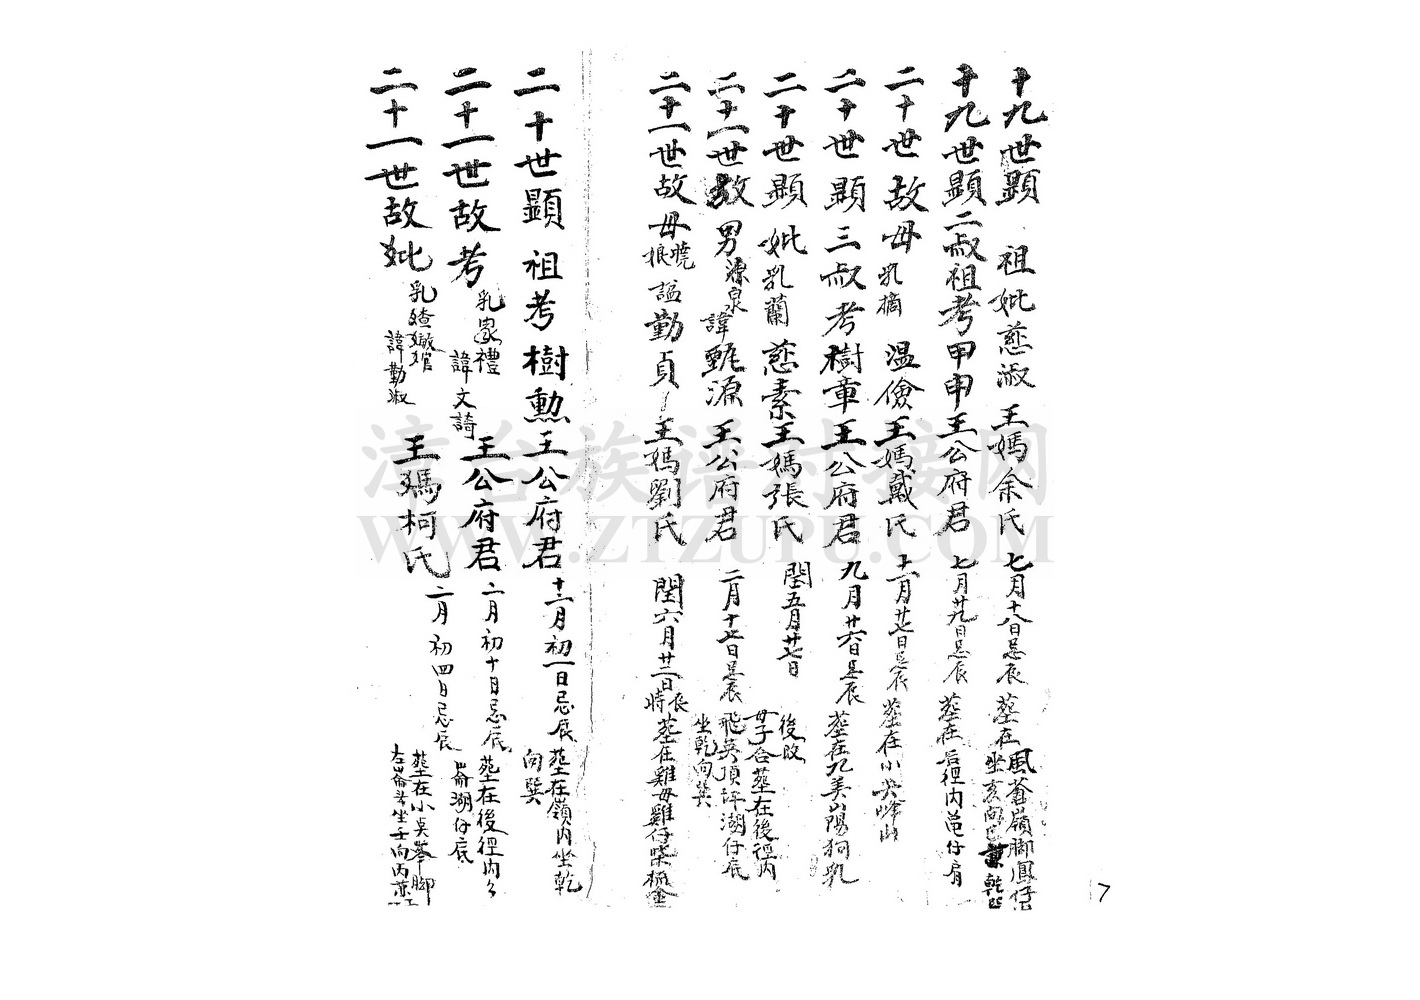 十九世顯 祖妣慈淑 王媽余氏 七月十八日忌辰 塟在風萶嶺脚鳳仔
坐亥向巳兼乾
十九世顯二叔祖考甲申王公府君 七月廿九日忌辰 塟在后徑内 仔肩
二十世故母乳摘 温儉王媽戴氏 十一月廿七日忌辰 塟在小尖峰山
二十世顯三叔考樹章王公府君 九月廿六日忌辰 塟在九美山陽狗乳
二十世顯妣乳蘭慈素王媽張氏 閏五月廿七日 後改
母子合塟在後徑内
二十一世故男源泉 諱甄源王公府君 二月十七日忌辰 飛英頂坪湖仔底
坐乾向巽
二十一世故母曉娘 謚勤貞 王媽劉氏 閏六月廿二日辰時 塟在雞母雞仔柴
二十世顯 祖考樹勲王公府君 十二月初一日忌辰 塟在嶺内坐乾
向巽
二十一世故考乳家禮 諱文錡 王公府君 二月初十日忌辰 塟在後徑内
崙湖仔底
二十一世故妣乳 諱勤淑 王媽柯氏 二月初四日忌辰 塟在小 峯脚
左崙 坐壬向丙
7
漳台族谱对接网
WWW.ZTZUPU.COM